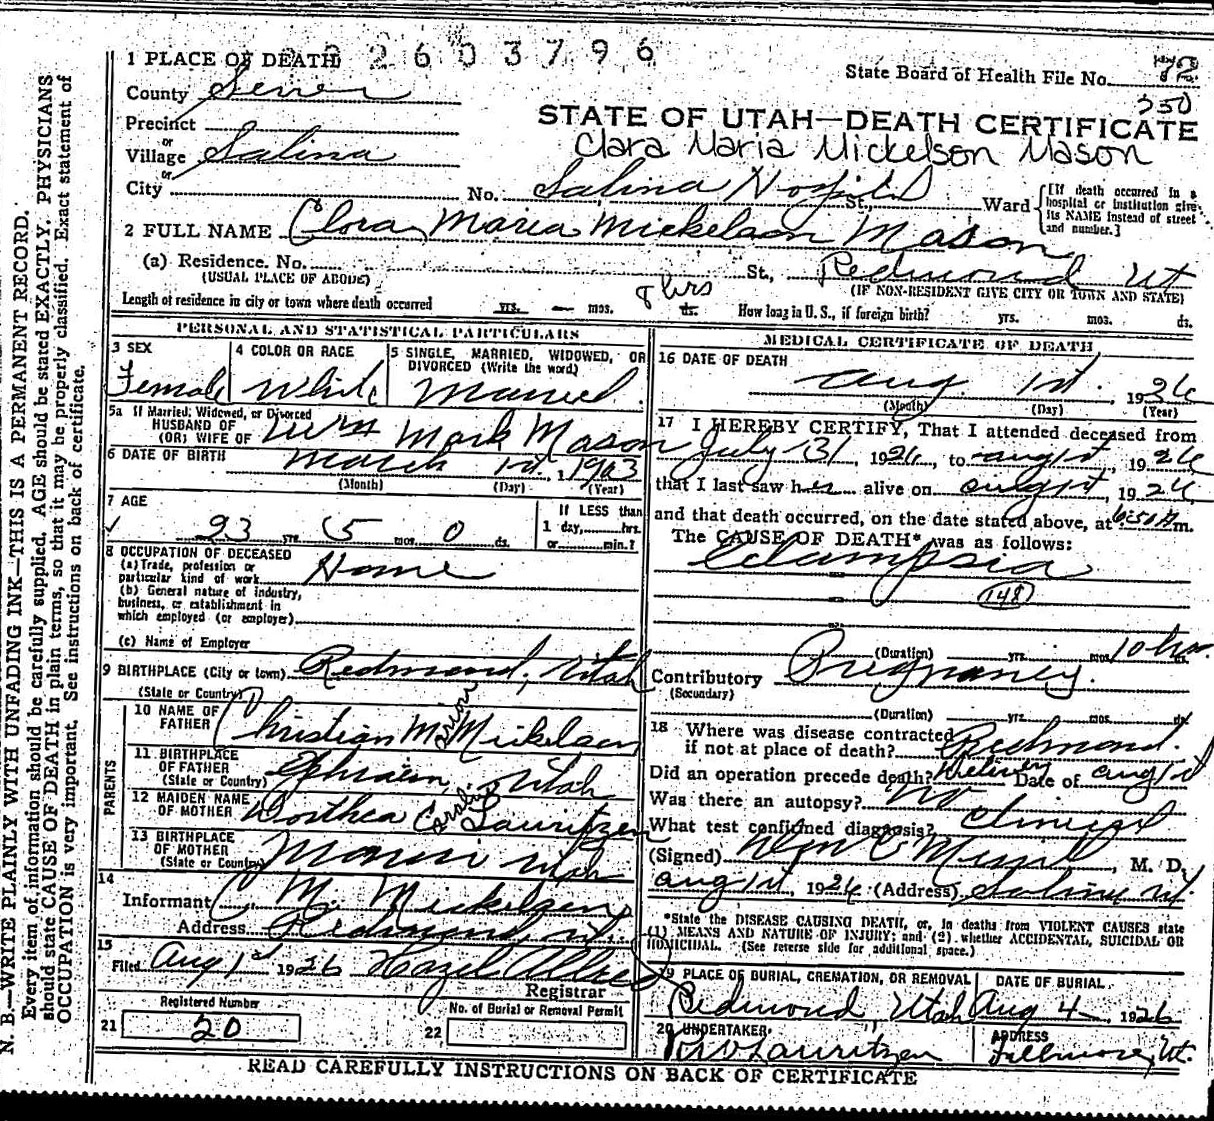 2603796
1 PLACE OF DEATH
State Board of Health File No. 72
350
County Sevier
STATE OF UTAH—DEATH CERTIFICATE
Precinct
or
Clara Maria Mickelson Mason
Village Salina
or
City No. Salina Hospital St., Ward
[If death occurred in a hospital or institution give its NAME instead of street and number.]
2 FULL NAME Clora Maria Mickelson Mason
(a) Residence. No. St., Redmond Ut
(USUAL PLACE OF ABODE) (IF NON-RESIDENT GIVE CITY OR TOWN AND STATE)
Length of residence in city or town where death occurred yrs. — mos. 8 hrs ds. How long in U. S., if foreign birth? yrs. mos. ds.
PERSONAL AND STATISTICAL PARTICULARS
3 SEX Female
4 COLOR OR RACE White
5 SINGLE, MARRIED, WIDOWED, OR DIVORCED (Write the word) Married
5a If Married, Widowed, or Divorced
HUSBAND OF
(OR) WIFE OF Mark Mason
6 DATE OF BIRTH March 1st, 1903
(Month) (Day) (Year)
7 AGE 23 yrs. 5 mos. 0 ds.
If LESS than 1 day, hrs. or min.?
8 OCCUPATION OF DECEASED
(a) Trade, profession or particular kind of work Home
(b) General nature of industry, business, or establishment in which employed (or employer)
(c) Name of Employer
9 BIRTHPLACE (City or town) Redmond, Utah
(State or Country)
PARENTS
10 NAME OF FATHER Christian M. Mickelsen
11 BIRTHPLACE OF FATHER (State or Country) Ephraim Utah
12 MAIDEN NAME OF MOTHER Dorthea Lauritzen
13 BIRTHPLACE OF MOTHER (State or Country) Utah
14
Informant C. M. Mickelsen
Address Redmond, Ut.
15
Filed Aug 1st 1926 Hazel
Registrar
Registered Number
No. of Burial or Removal Permit
21 20 22
MEDICAL CERTIFICATE OF DEATH
16 DATE OF DEATH
Aug. 1st. 1926
(Month) (Day) (Year)
17 I HEREBY CERTIFY, That I attended deceased from
July 31, 1926, to Aug 1st, 1926
that I last saw her alive on Aug 1st, 1926
and that death occurred, on the date stated above, at 6:50 A m.
The CAUSE OF DEATH* was as follows:
Eclampsia
148
(Duration) yrs. mos. 10 hrs. ds.
Contributory Pregnancy.
(Secondary)
(Duration) yrs. mos. ds.
18 Where was disease contracted
if not at place of death? Redmond.
Did an operation precede death? Delivery Date of Aug 1st
Was there an autopsy? No
What test confirmed diagnosis? Clinical
(Signed) , M. D.
Aug 1st, 1926 (Address) Salina Ut.
*State the DISEASE CAUSING DEATH, or, in deaths from VIOLENT CAUSES state
(1) MEANS AND NATURE OF INJURY; and (2) whether ACCIDENTAL, SUICIDAL OR
HOMICIDAL. (See reverse side for additional space.)
19 PLACE OF BURIAL, CREMATION, OR REMOVAL
Redmond, Utah
DATE OF BURIAL.
Aug 4 1926
20 UNDERTAKER
Lauritzen
ADDRESS
Fillmore, Ut.
READ CAREFULLY INSTRUCTIONS ON BACK OF CERTIFICATE
N. B.—WRITE PLAINLY WITH UNFADING INK—THIS IS A PERMANENT RECORD.
Every item of information should be carefully supplied. AGE should be stated EXACTLY. PHYSICIANS
should state CAUSE OF DEATH in plain terms, so that it may be properly classified. Exact statement of
OCCUPATION is very important. See instructions on back of certificate.